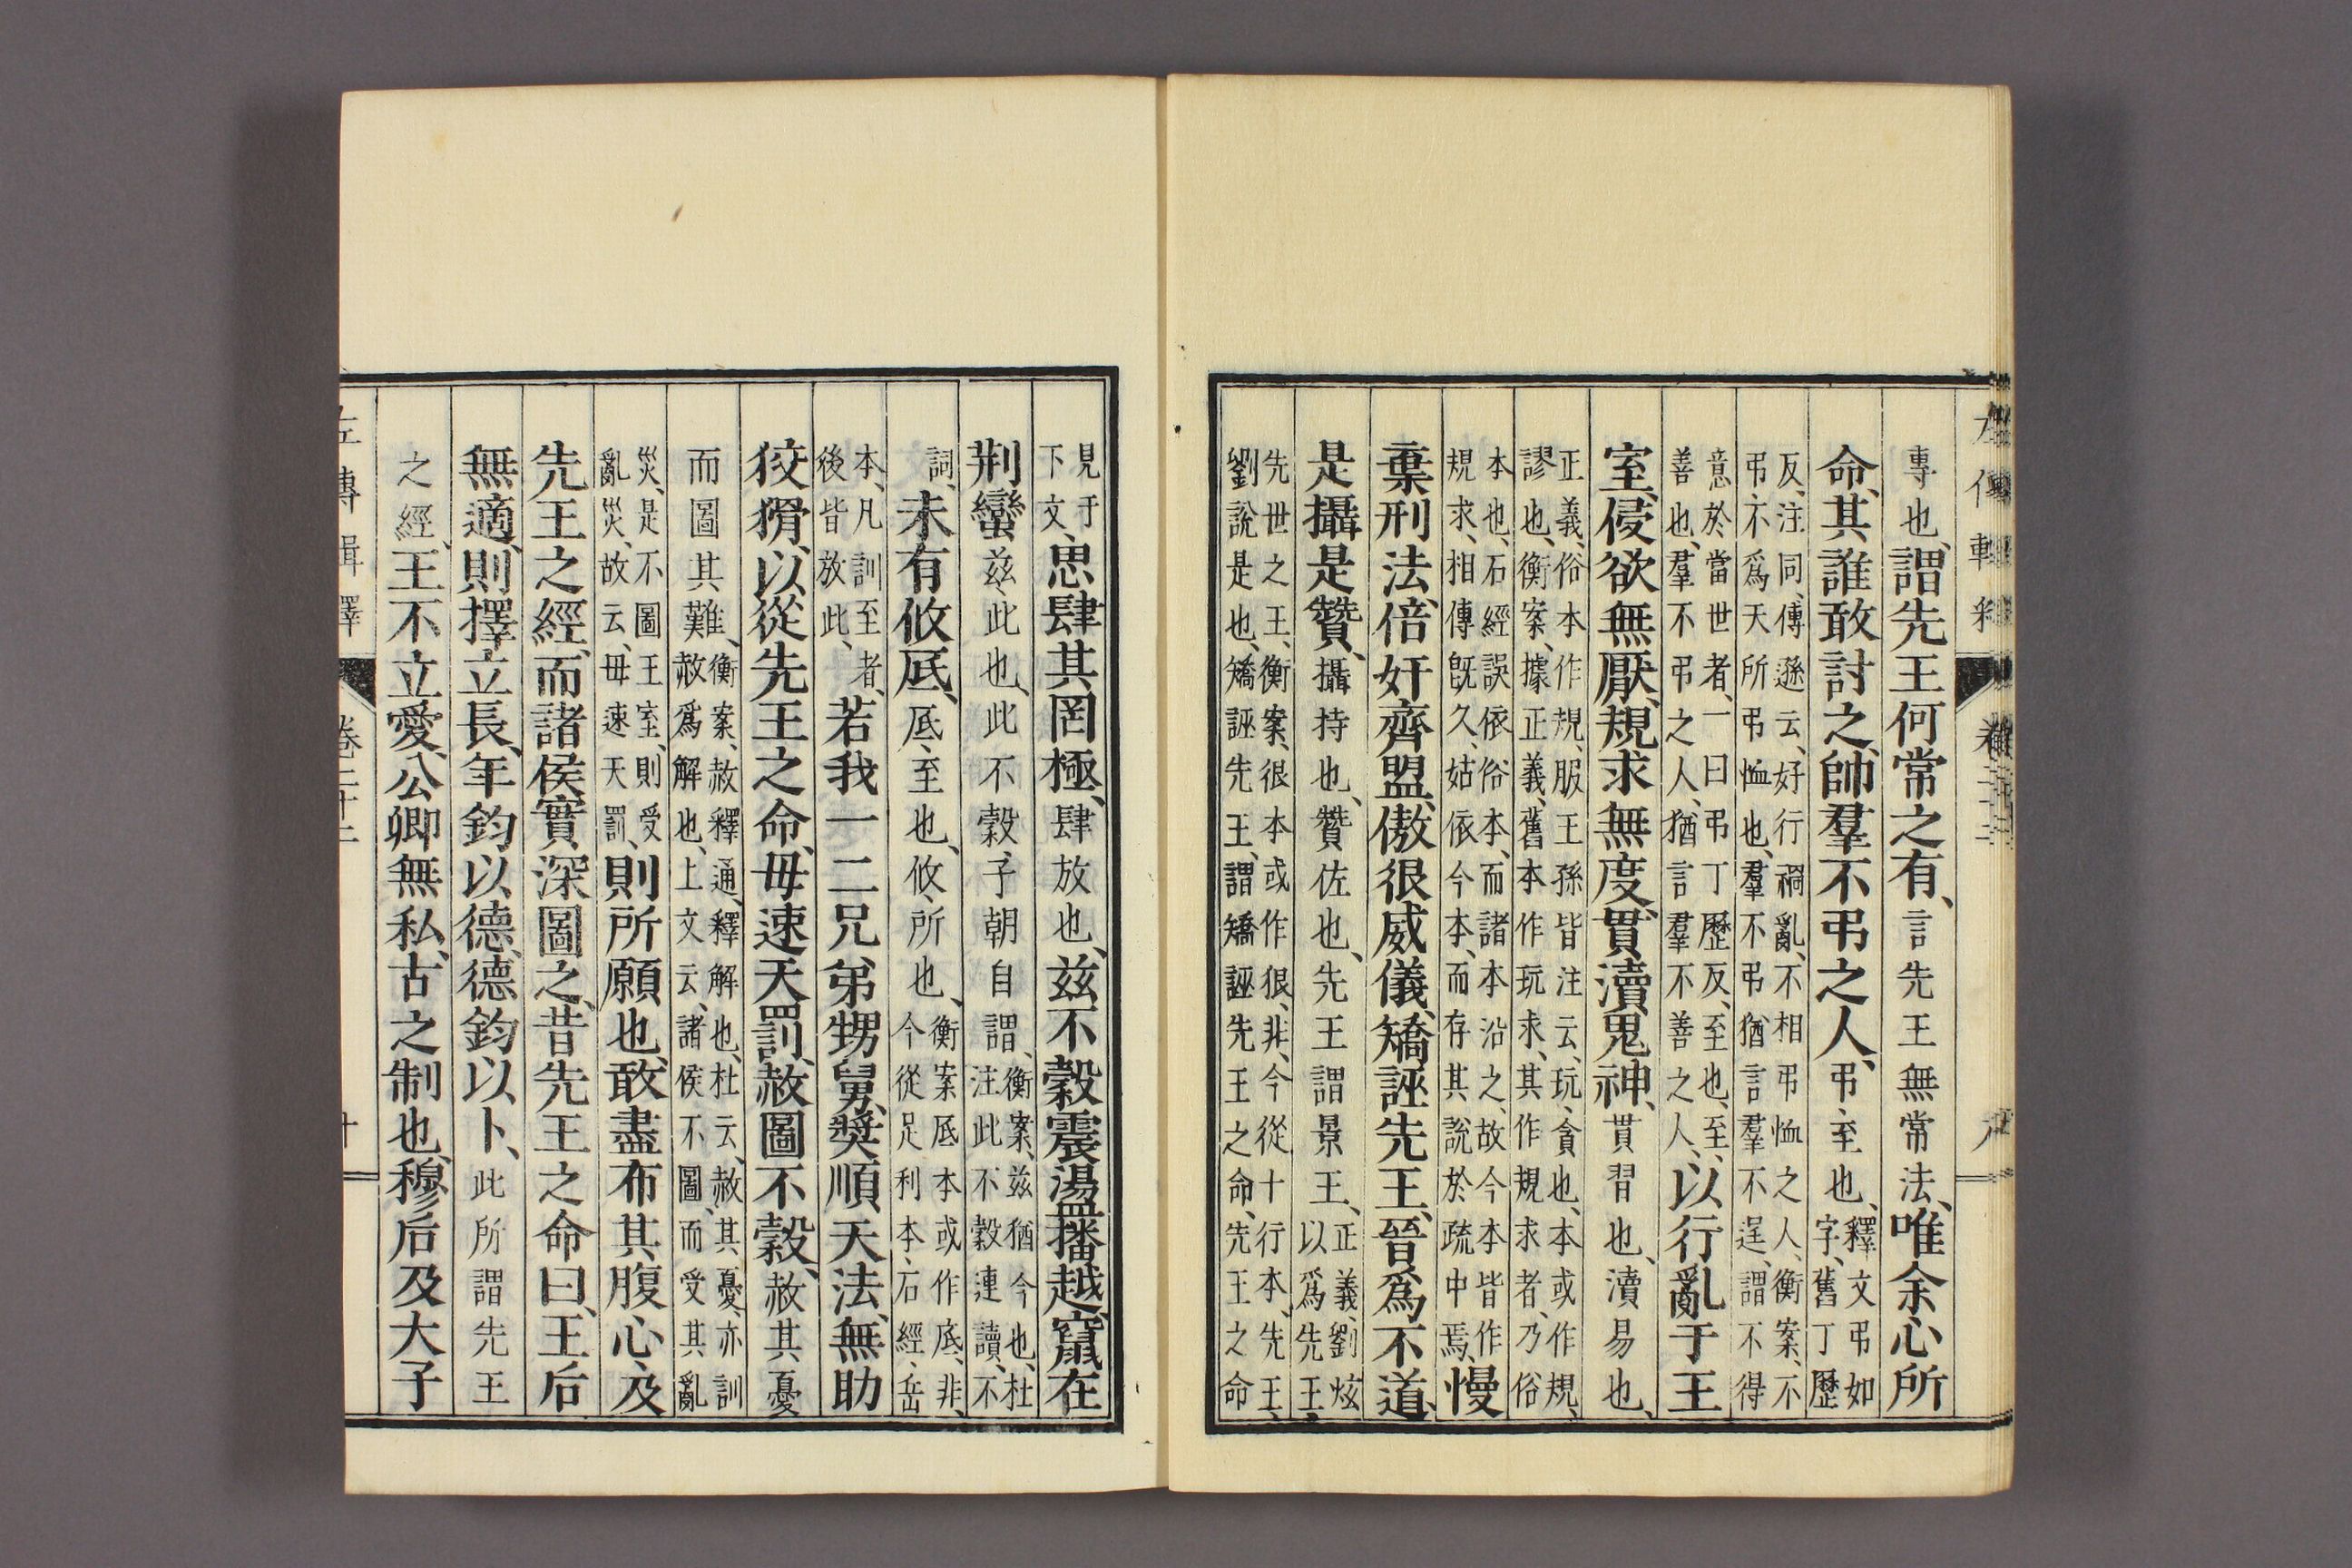 專也、謂先王何常之有、言先王無常法、唯余心所
命、其誰敢討之、帥羣不弔之人、弔、至也、釋文弔如字、舊丁歷
反、注同、傳遜云、好行禍亂、不相弔恤之人、衡案、不弔、不爲天所弔恤也、羣不弔、猶言羣不逞、謂不得
意於當世者、一曰弔丁歷反、至也、至、善也、羣不弔之人、猶言羣不善之人、以行亂于王
室、侵欲無厭、規求無度、貫瀆鬼神、貫習也、瀆易也、
正義、俗本作規、服王孫皆注云、玩、貪也、本或作規、謬也、衡案、據正義、舊本作玩求、其作規求者、乃俗
本也、石經誤依俗本、而諸本沿之、故今本皆作規求、相傳旣久、姑依今本、而存其說於疏中焉、慢
棄刑法、倍奸齊盟、傲很威儀、矯誣先王、晉爲不道、
是攝是贊、攝持也、贊佐也、先王謂景王、正義、劉炫以爲先王、
先世之王、衡案、很本或作狠、非、今從十行本、先王、劉說是也、矯誣先王、謂矯誣先王之命、先王之命
見于下文、思肆其罔極、肆放也、兹不穀震盪播越、竄在
荆蠻、兹、此也、此不穀、子朝自謂、衡案、兹猶今也、杜注此不穀連讀、不
詞、未有攸厎、厎、至也、攸、所也、衡案厎本或作底、非、今從足利本、石經、岳
本、凡訓至者、後皆放此、若我一二兄弟甥舅、奬順天法、無助
狡猾、以從先王之命、毋速天罰、赦圖不穀、赦其憂
而圖其難、衡案、赦釋通、釋解也、杜云、赦其憂、亦訓赦爲解也、上文云、諸侯不圖、而受其亂
災、是不圖王室、則受亂災、故云、毋速天罰、則所願也、敢盡布其腹心、及
先王之經、而諸侯實深圖之、昔先王之命曰、王后
無適、則擇立長、年鈞以德、德鈞以卜、此所謂先王
之經、王不立愛、公卿無私、古之制也、穆后及大子
左傳輯釋 卷二十二 十